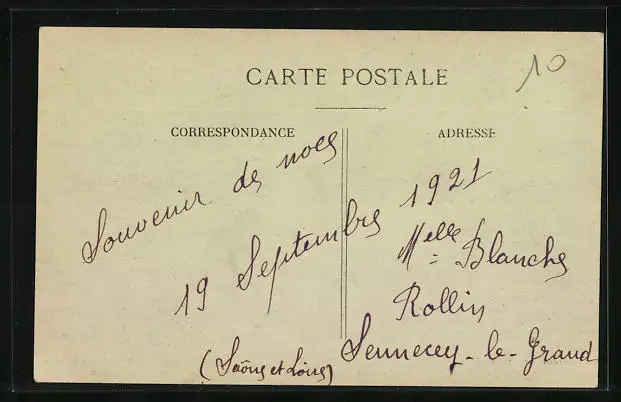 10
CARTE POSTALE
CORRESPONDANCE
ADRESSE
Souvenir de noce
19 Septembre 1921
Melle Blanche
Rollin
Sennecey-le-Grand
(Saône et Loire)